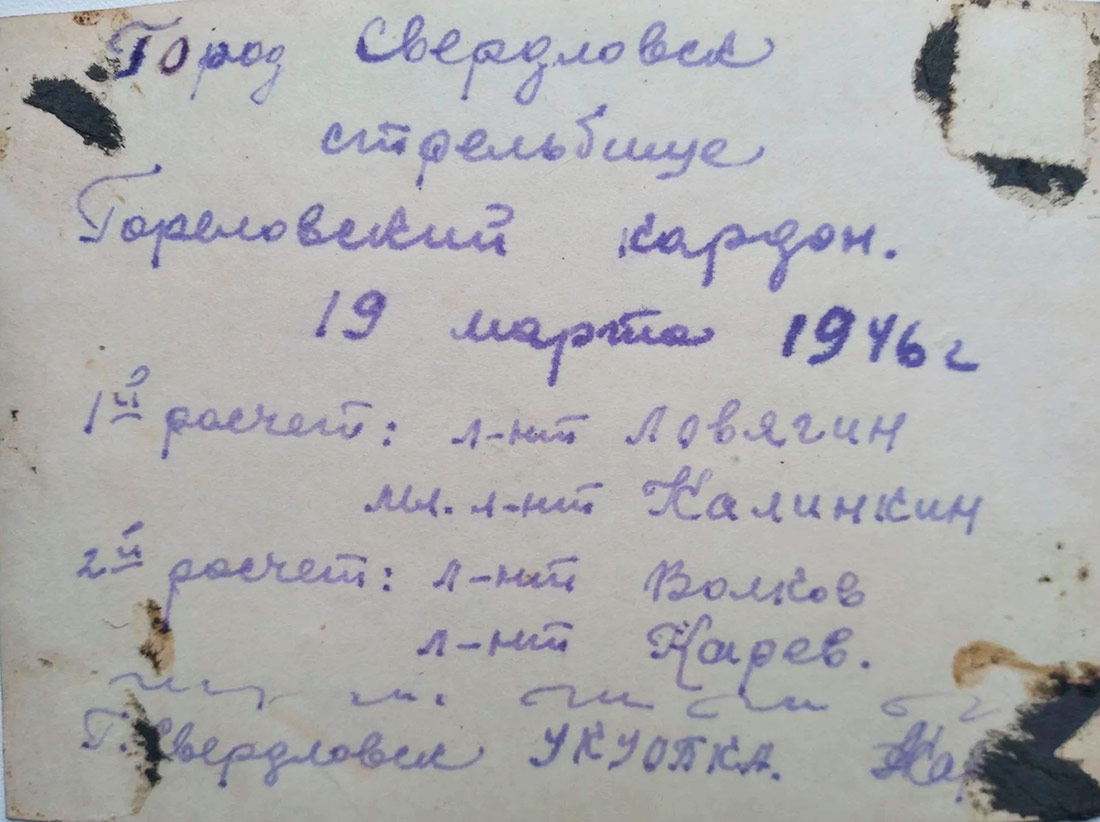 Город Свердловск
стрельбище
Гореловский кардон.
19 марта 1946 г
1й расчет: л-нт Ловягин
мл. л-нт Калинкин
2й расчет: л-нт Волков
л-нт
Г. Свердловск УКУОПКА.